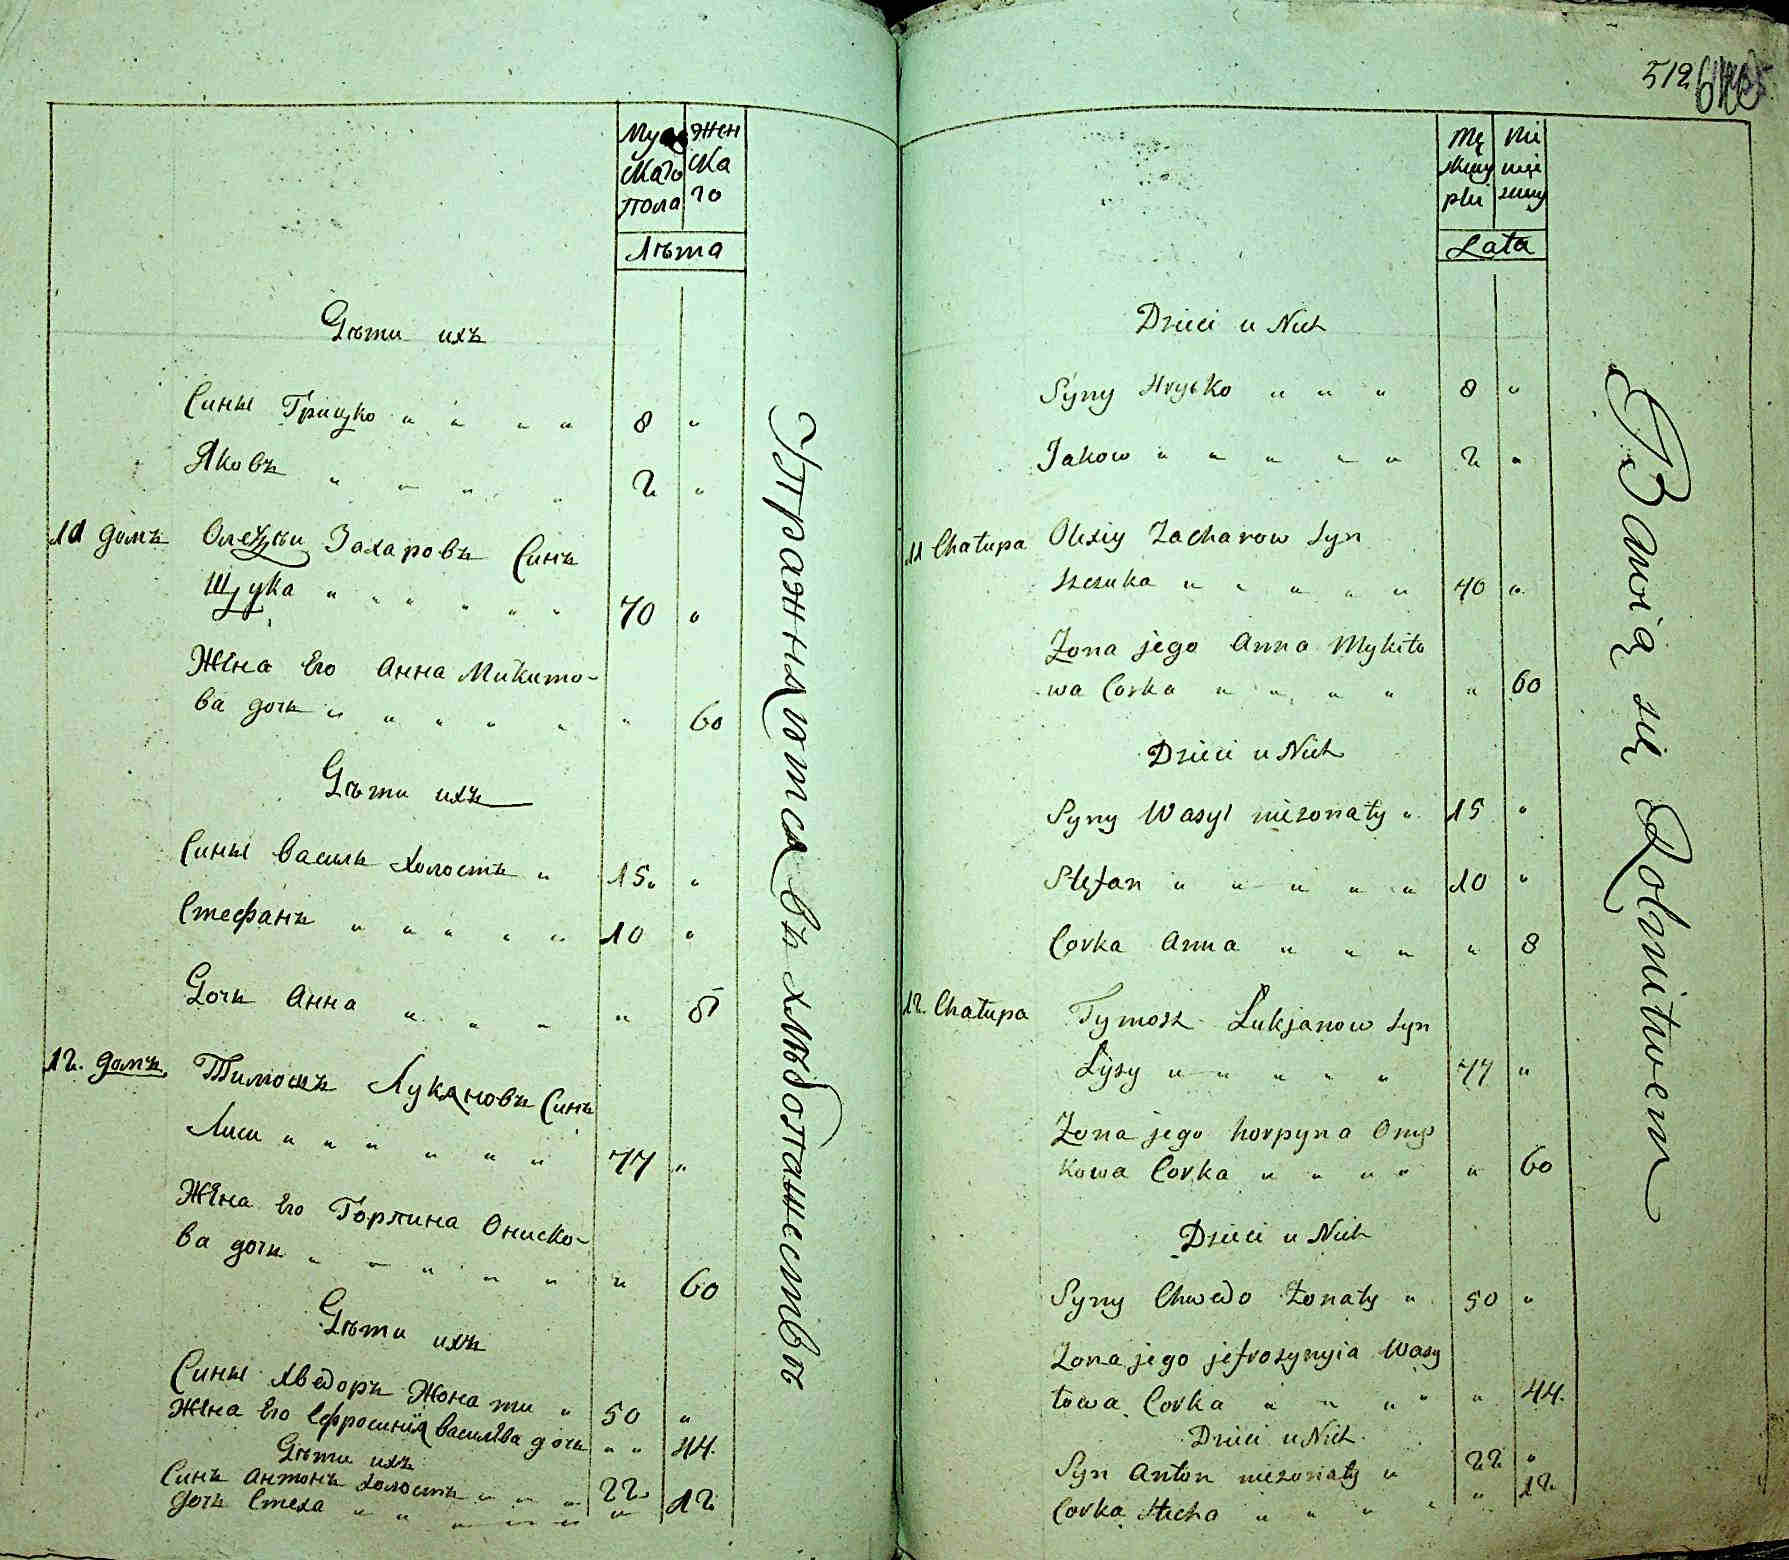 Муж
скаго
пола
Жен
ска
го
Лѣта
Дѣти ихъ
Сины Грицко " " " " 8 "
Яковъ " " " " 2 "
11 домъ Олеѯѣи Захаровъ Синъ
Щука " " " " " " 70 "
Жена Его Анна Микито-
ва дочь " " " " " " 60
Дѣти ихъ
Сины Василь холостъ " 15 "
Стефанъ " " " " " 10 "
Дочь Анна " " " " 8
12. домъ Тимошъ Лукяновъ Синъ
Лиси " " " " " " 77 "
Жена Его Горпина Ониско-
ва дочь " " " " " " 60
Дѣти ихъ
Сины Хведоръ Жонати " 50 "
Жена Его Ефросинія Василева дочь " " 44.
Дѣти ихъ
Синъ Антонъ холостъ " " " 22
дочь Стеха " " " " " " 12
Упражняются въ хлѣбопашествѣ
512
Mę
skiey
płci
Nie
wie
sciey
Lata
Dzieci u Nich
Syny Hrycko " " " 8 "
Jakow " " " " " 2 "
11 Chałupa Olexiy Zacharow Syn
Szczuka " " " " " 70 "
Żona jego Anna Mykito
wa Corka " " " " " 60
Dzieci u Nich
Syny Wasyl nieżonaty " 15 "
Stefan " " " " " 10 "
Corka Anna " " " " 8
12. Chałupa Tymosz Łukjanow Syn
Łysy " " " " " 77 "
Żona jego horpyna Onys
kowa Corka " " " " " 60
Dzieci u Nich
Syny Chwedo Żonaty " 50 "
Żona jego jefrosynyia Wasy
lowa Corka " " " " " 44.
Dzieci u Nich
Syn Anton nieżonaty " 22 "
Corka Stecha " " " " " 12
Bawią się Rolnitwem